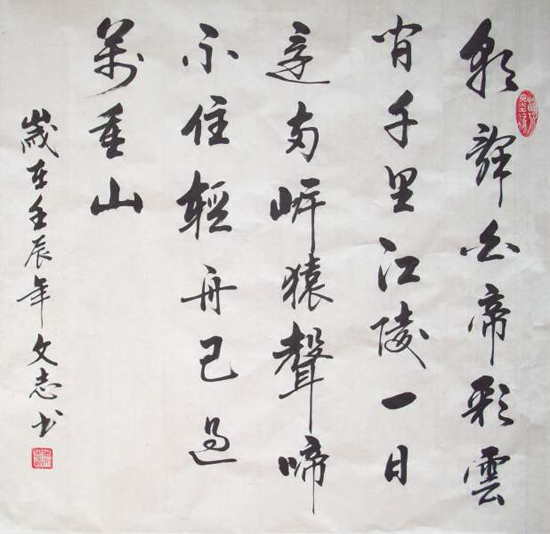 朝辞白帝彩雲
间千里江陵一日
还両岸猿聲啼
不住輕舟已过
萬重山
歲在壬辰年文志书